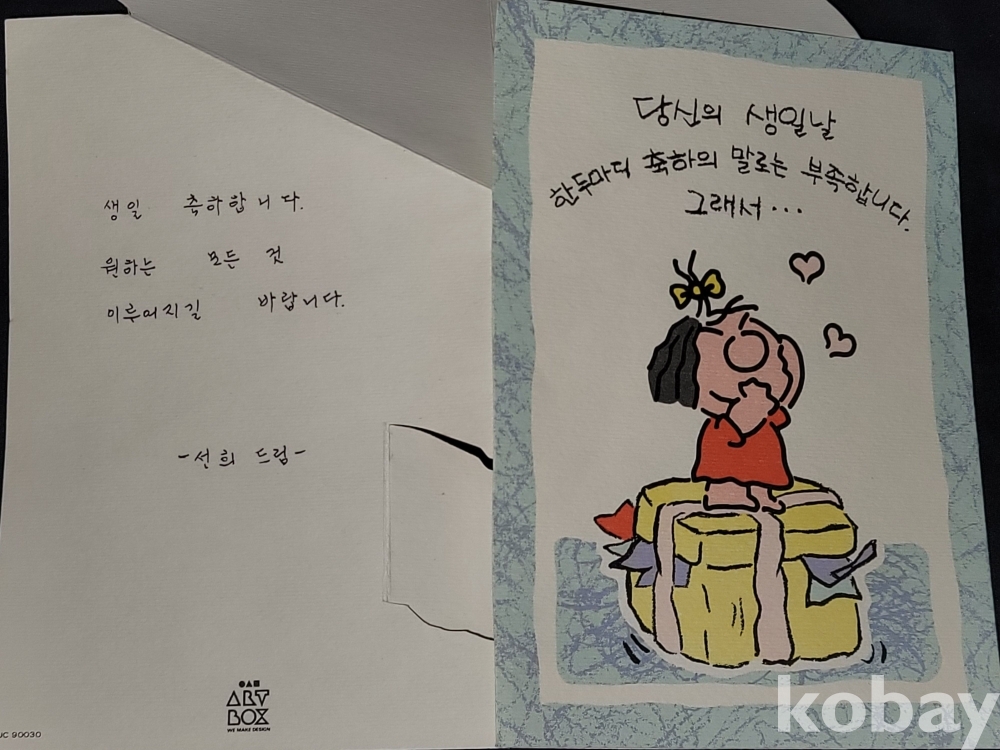 생일 축하합니다.
원하는 모든 것
이루어지길 바랍니다.
-선희 드림-
ART
BOX
WE MAKE DESIGN
JC 90030
당신의 생일날
한두마디 축하의 말로는 부족합니다.
그래서...
kobay